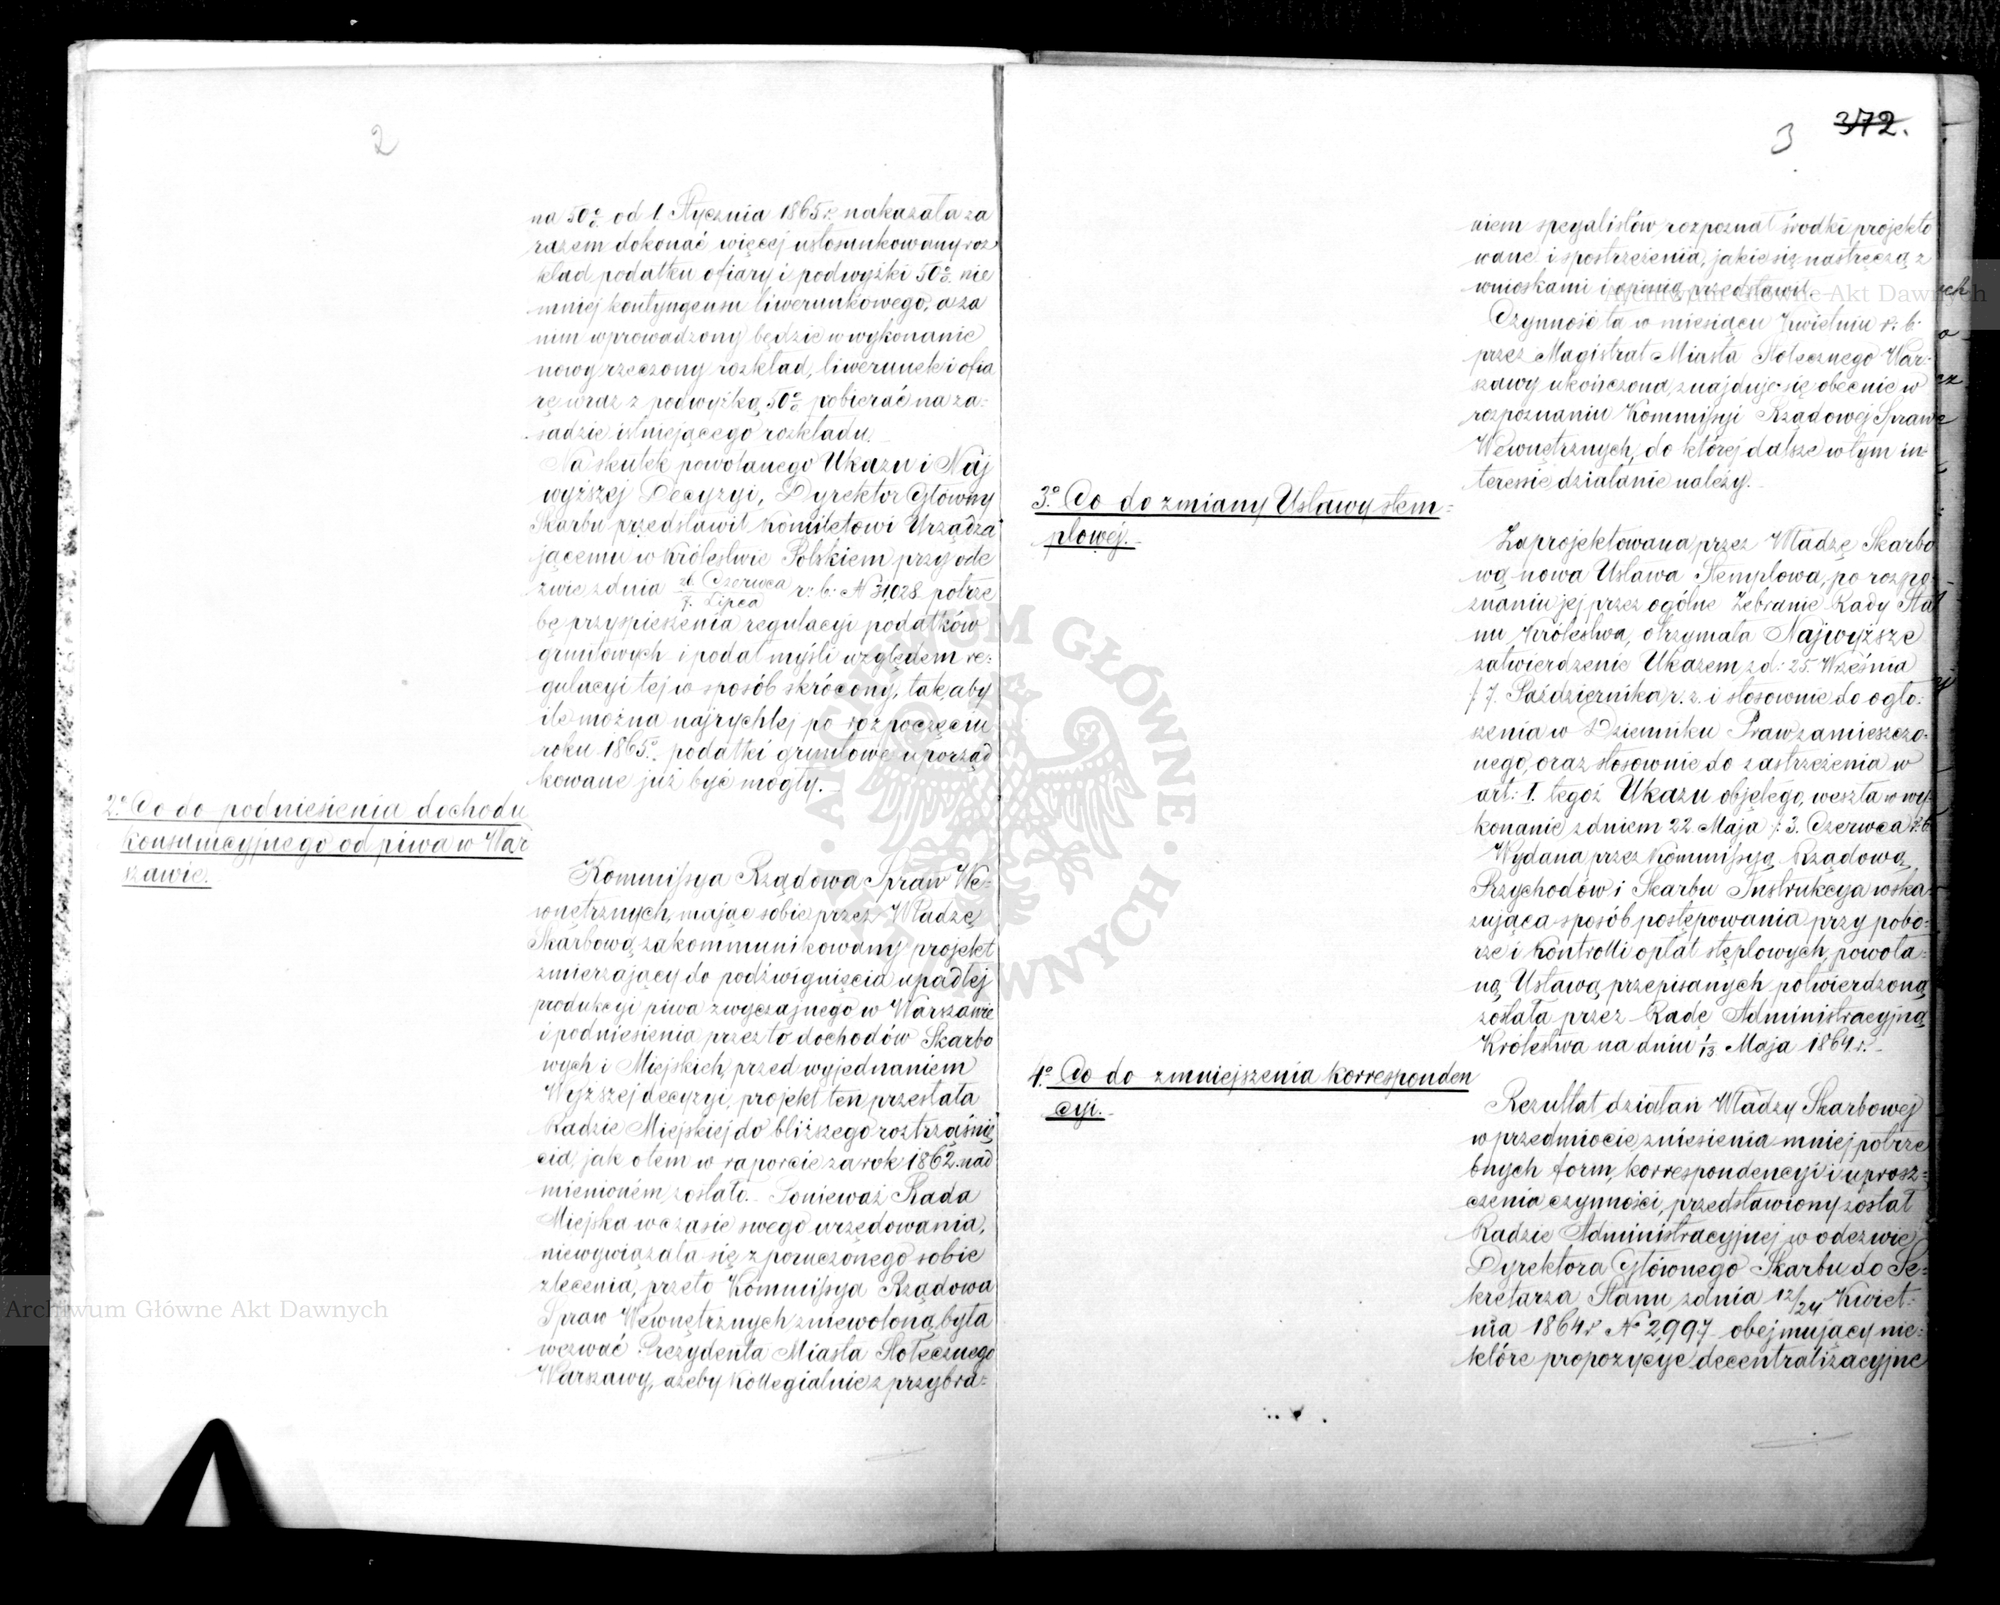 2
na 50% od 1. Stycznia 1865 r. nakazała za
razem dokonać więcej ustosunkowany roz
kład podatku ofiary i podwyżki 50% nie
mniej kontyngensu liwerunkowego, a za
nim wprowadzony będzie w wykonanie
nowy rzeczony rozkład, liwerunek i ofia
rę wraz z podwyżką 50% pobierać na za-
sadzie istniejącego rozkładu.
Na skutek powołanego Ukazu i Naj
wyższej Decyzyi, Dyrektor Główny
Skarbu przedstawił Komitetowi Urządza
jącemu w Królestwie Polskiem przy ode
zwie z dnia 26 Czerwca / 7. Lipca r: b: N 31028 potrze
bę przyspieszenia regulacyi podatków
gruntowych i podał myśli względem re-
gulacyi tej w sposób skrócony, tak, aby
ile można najrychlej po rozpoczęciu
roku 1865º podatki gruntowe uporząd
kowane już być mogły.
2º Co do podniesienia dochodu
konsumcyjnego od piwa w War
szawie.
Kommissya Rządowa Spraw We-
wnętrznych, mając sobie przez Władzę
Skarbową zakommunikowany projekt
zmierzający do podźwignięcia upadłej
produkcyi piwa zwyczajnego w Warszawie
i podniesienia przez to dochodów Skarbo
wych i Miejskich, przed wyjednaniem
Wyższej decyzyi, projekt ten przesłała
Radzie Miejskiej do bliższego roztrząśnię
cia, jak o tem w raporcie za rok 1862. nad
mienioném zostało. Ponieważ Rada
Miejska w czasie swego urzędowania,
niewywiązała się z poruczonego sobie
zlecenia, przeto Kommissya Rządowa
Spraw Wewnętrznych zniewoloną była
wezwać Prezydenta Miasta Stołecznego
Warszawy, ażeby kollegialnie z przybra-
3
372.
niem specyalistów rozpoznał środki projekto
wane i spostrzeżenia, jakie się nastręczą z
wnioskami i opinią przedstawił.
Czynność ta w miesiącu Kwietniu r: b:
przez Magistrat Miasta Stołecznego War-
szawy ukończona, znajduje się obecnie w
rozpoznaniu Kommissyi Rządowej Spraw
Wewnętrznych, do której dalsze w tym in-
teressie działanie należy.
3º Co do zmiany Ustawy stem-
plowéj.
Zaprojektowana przez Władzę Skarbo
wą nowa Ustawa Stemplowa, po rozpo-
znaniu jej przez ogólne Zebranie Rady Sta
nu Królestwa, otrzymała Najwyższe
zatwierdzenie Ukazem z d: 25 Września
/ 7. Października r. z. i stosownie do ogło-
szenia w Dzienniku Praw zamieszczo-
nego, oraz stosownie do zastrzeżenia w
art: 1. tegoż Ukazu objętego, weszła w wy-
konanie z dniem 22 Maja / 3. Czerwca r. b
Wydana przez Kommissyą Rządową
Przychodów i Skarbu Instrukcya wska-
zująca sposób postępowania przy pobo-
rze i kontrolli opłat stęplowych, powoła-
ną Ustawą przepisanych potwierdzoną
została przez Radę Administracyjną
Królestwa na dniu 1/13 Maja 1864 r.
4º Co do zmniejszenia korresponden
cyi.
Rezultat działań Władzy Skarbowej
w przedmiocie zniesienia mniej potrze
bnych form, korrespondencyi i uprosz-
czenia czynności, przedstawiony został
Radzie Administracyjnej w odezwie
Dyrektora Głównego Skarbu do Se-
kretarza Stanu z dnia 12/24 Kwiet-
nia 1864 r N 2997 obejmujący nie-
które propozycye decentralizacyjne
Archiwum Główne Akt Dawnych
Archiwum Główne Akt Dawnych
ARCHIWUM GŁÓWNE AKT DAWNYCH